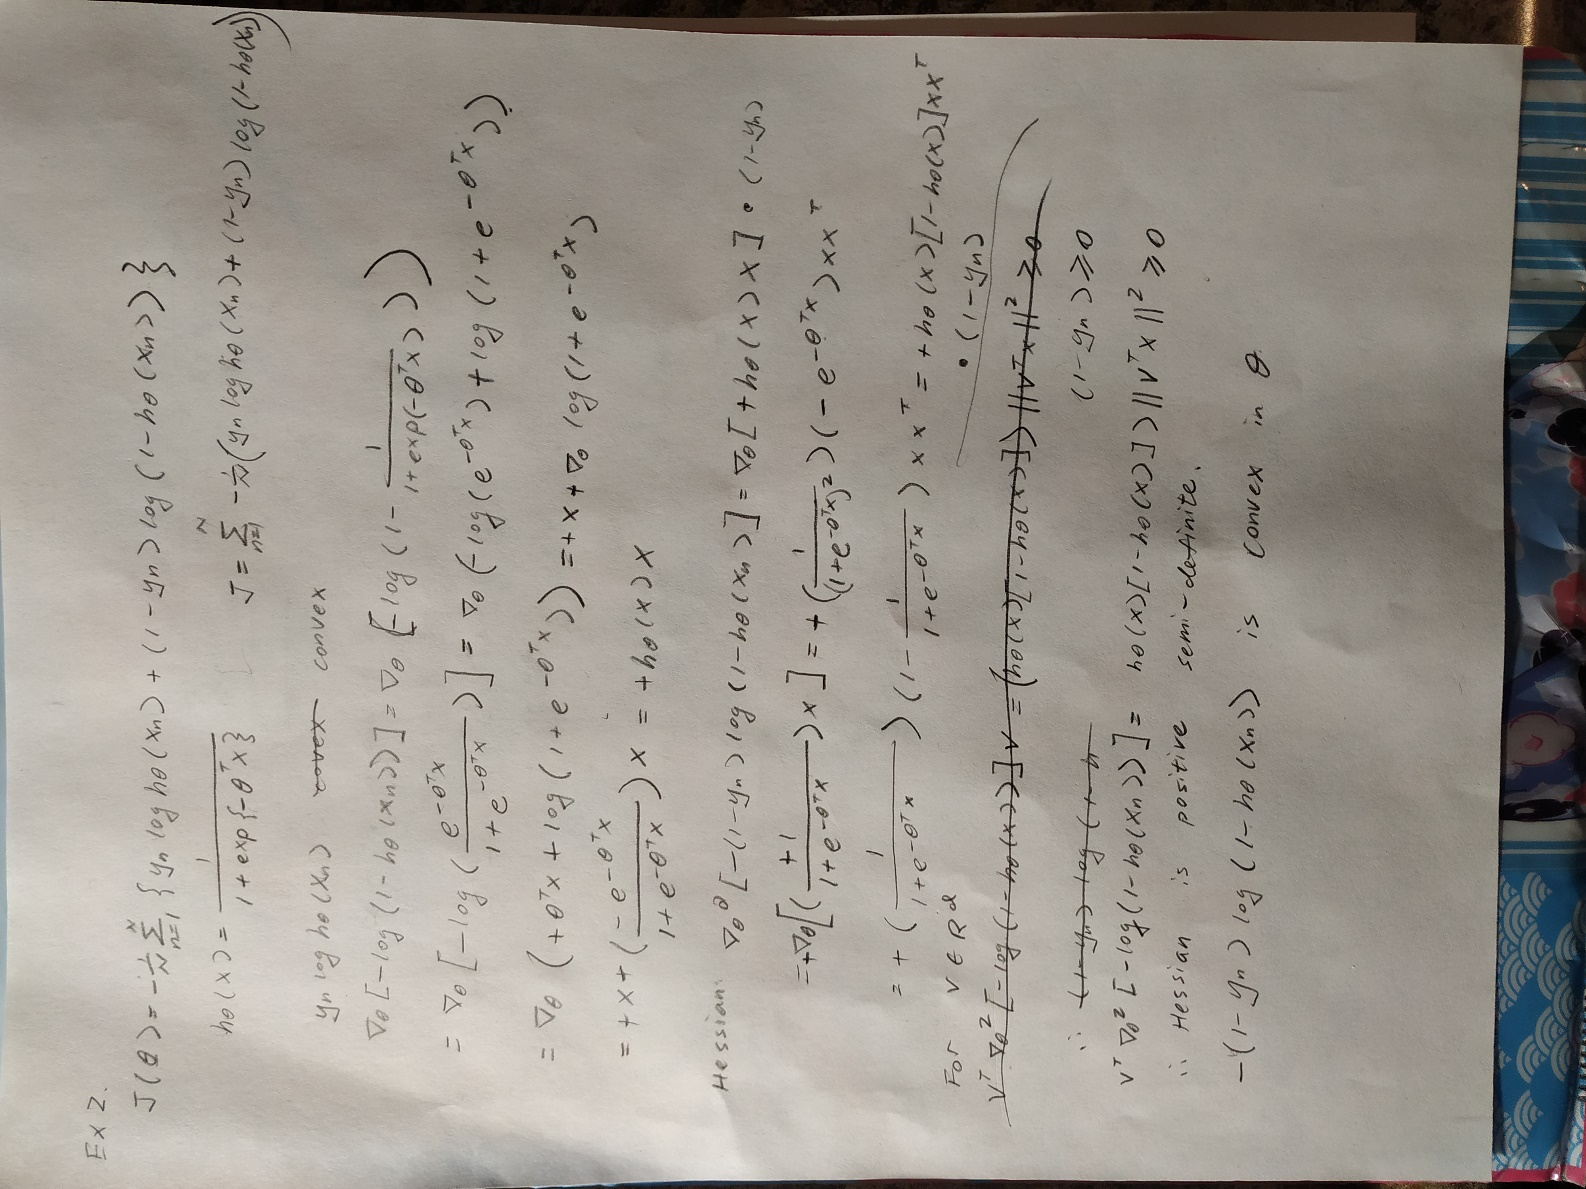 Ex 2.
J(θ) = -1/N Σ_{n=1}^{N} {yn log hθ(xn) + (1-yn) log (1-hθ(xn))}
hθ(x) = 1/(1+exp{-θᵀx}) J = Σ_{n=1}^{N} -1/N (yn log hθ(xn) + (1-yn) log (1-hθ(xn)))
yn log hθ(xn) convex
∇θ [-log (1-hθ(xn))] = ∇θ [-log (1 - 1/(1+exp(-θᵀx)))]
= ∇θ [-log (e^{-θᵀx}/(1+e^{-θᵀx}))] = ∇θ (-log (e^{-θᵀx}) + log (1+e^{-θᵀx}))
= ∇θ (+θᵀx + log (1+e^{-θᵀx})) = +x + ∇θ log (1+e^{-θᵀx})
= +x + (-e^{-θᵀx}/(1+e^{-θᵀx})) x = +hθ(x) x
Hessian: ∇θ² [-(1-yn) log (1-hθ(xn))] = ∇θ [+hθ(x) x] • (1-yn)
= +∇θ [(+1/(1+e^{-θᵀx})) x] = +(1/(1+e^{-θᵀx})²) (-e^{-θᵀx}) x xᵀ
= +(1/(1+e^{-θᵀx})) (1 - 1/(1+e^{-θᵀx})) x xᵀ = +hθ(x)[1-hθ(x)] x xᵀ
• (1-yn)
For v ∈ Rᵈ
vᵀ ∇θ² [-log (1-hθ(x))] v = (hθ(x)[1-hθ(x)]) ||vᵀx||² ≥ 0
∴ (1-yn) log (1-h (1-yn) ≥ 0
vᵀ ∇θ² [-log (1-hθ(xn))] = hθ(x)[1-hθ(x)]) ||vᵀx||² ≥ 0
∴ Hessian is positive semi-definite.
-(1-yn) log (1-hθ(xn)) is convex in θ